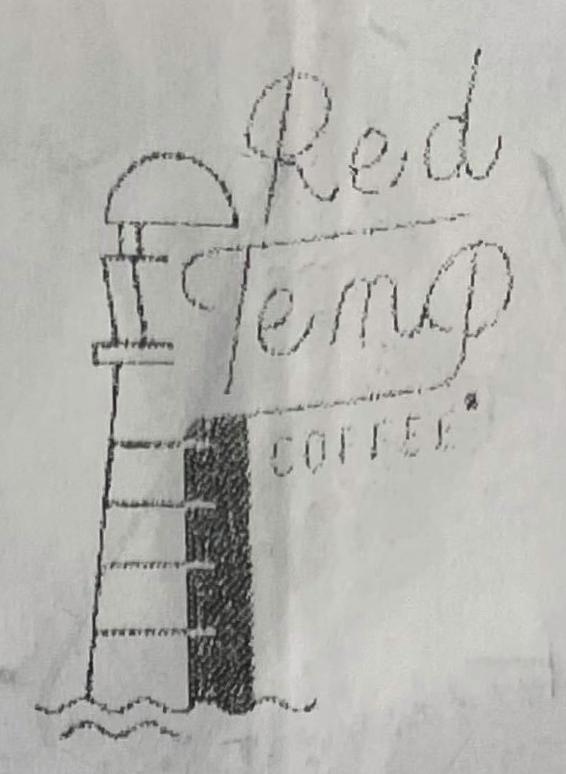 Red
Temp
COFFEE